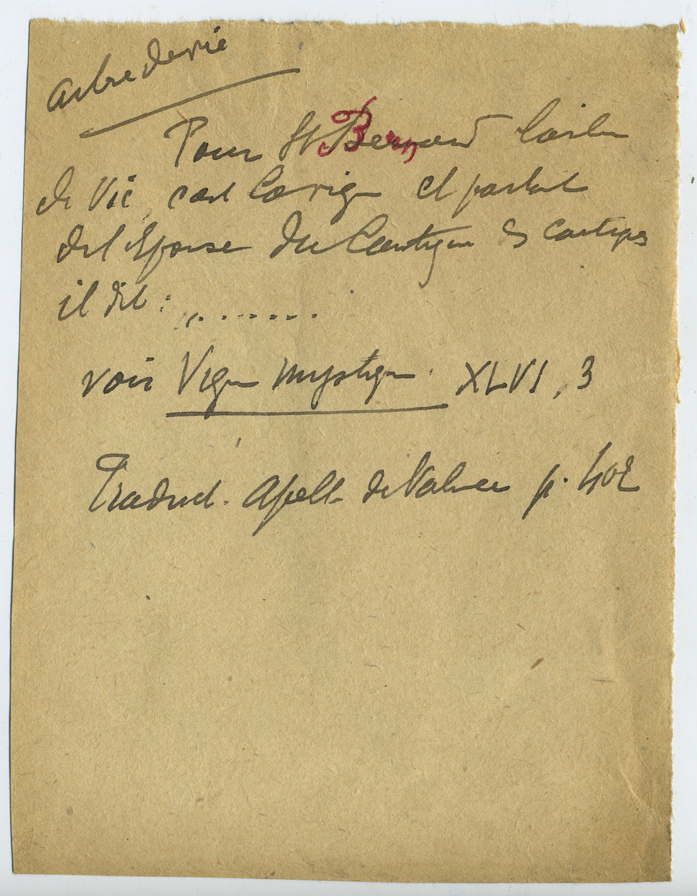 arbre de vie
Pour St Bernard l'arbre
de Vie, c'est la vigne et parlant
de l'Epouse du Cantique des cantiques
il dit : ........
voir Vigne mystique XLVI, 3
Traduct. Apoll. de Valence p. 402